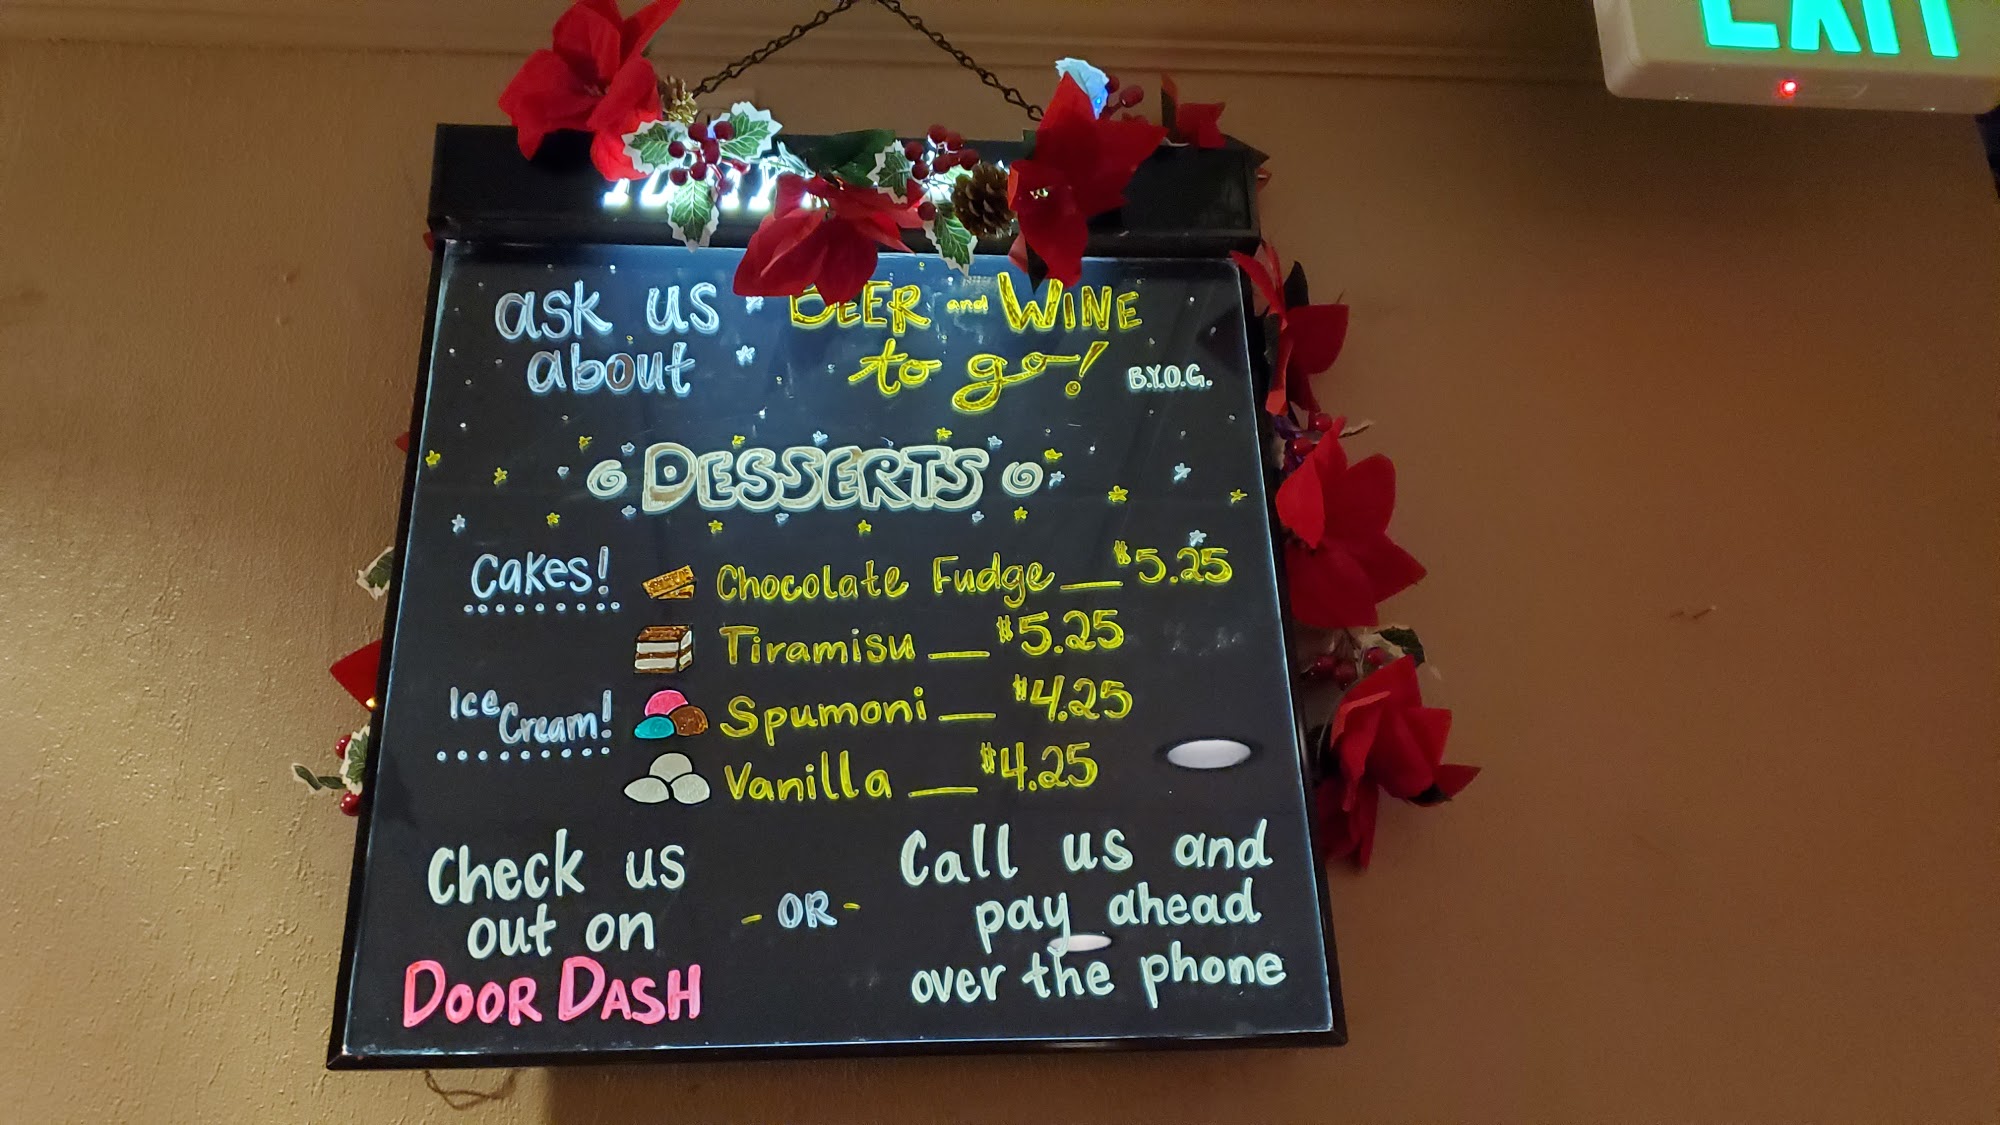 EXIT
ask us
about
BEER and WINE
to go!
B.Y.O.G.
DESSERTS
Cakes!
Chocolate Fudge __ $5.25
Tiramisu __ $5.25
Ice Cream!
Spumoni __ $4.25
Vanilla __ $4.25
Check us
out on
DOOR DASH
- OR -
Call us and
pay ahead
over the phone